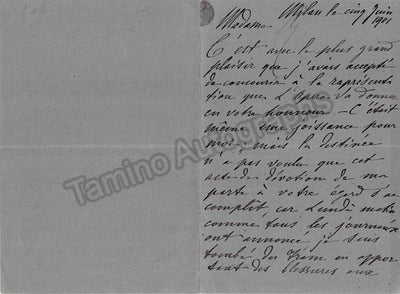 Mylan le cinq Juin
1901
Madame
C'est avec le plus grand
plaisir que j'avais accepté
de concourir à la représenta
tion que l'Opera va donner
en votre honneur — C'était
même une joissance pour
moi; mais la destinée
n'a pas voulue que cet
acte de dévotion de ma
parte à votre égard s'ac
complît, car lundi matin
comme tous les journeaux
ont annoncé je suis
tombé du Tram en appor
tant des blessures aux
Tamino Autographs